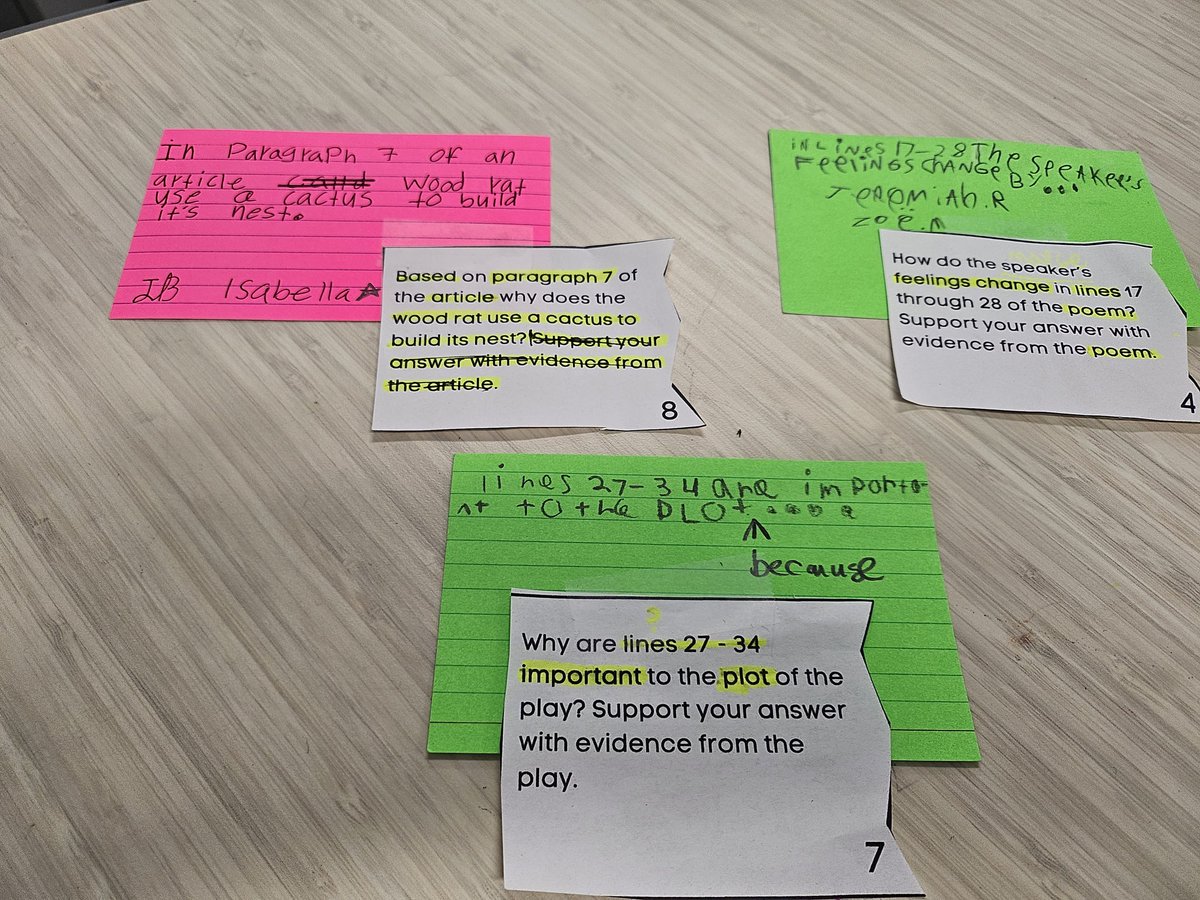 In Paragraph 7 of an
article caind wood rat
use a cactus to build
it's nest.
IB Isabella
Based on paragraph 7 of
the article why does the
wood rat use a cactus to
build its nest? Support your
answer with evidence from
the article.
8
IN LINES 17-28 The SpeaKer's
FeeliNGS CHANGE By...
JeremiAh.R
zoë.n
How do the speaker's
feelings change in lines 17
through 28 of the poem?
Support your answer with
evidence from the poem.
4
lines 27-34 are importa
nt to the PLOt....
because
Why are lines 27 - 34
important to the plot of the
play? Support your answer
with evidence from the
play.
7